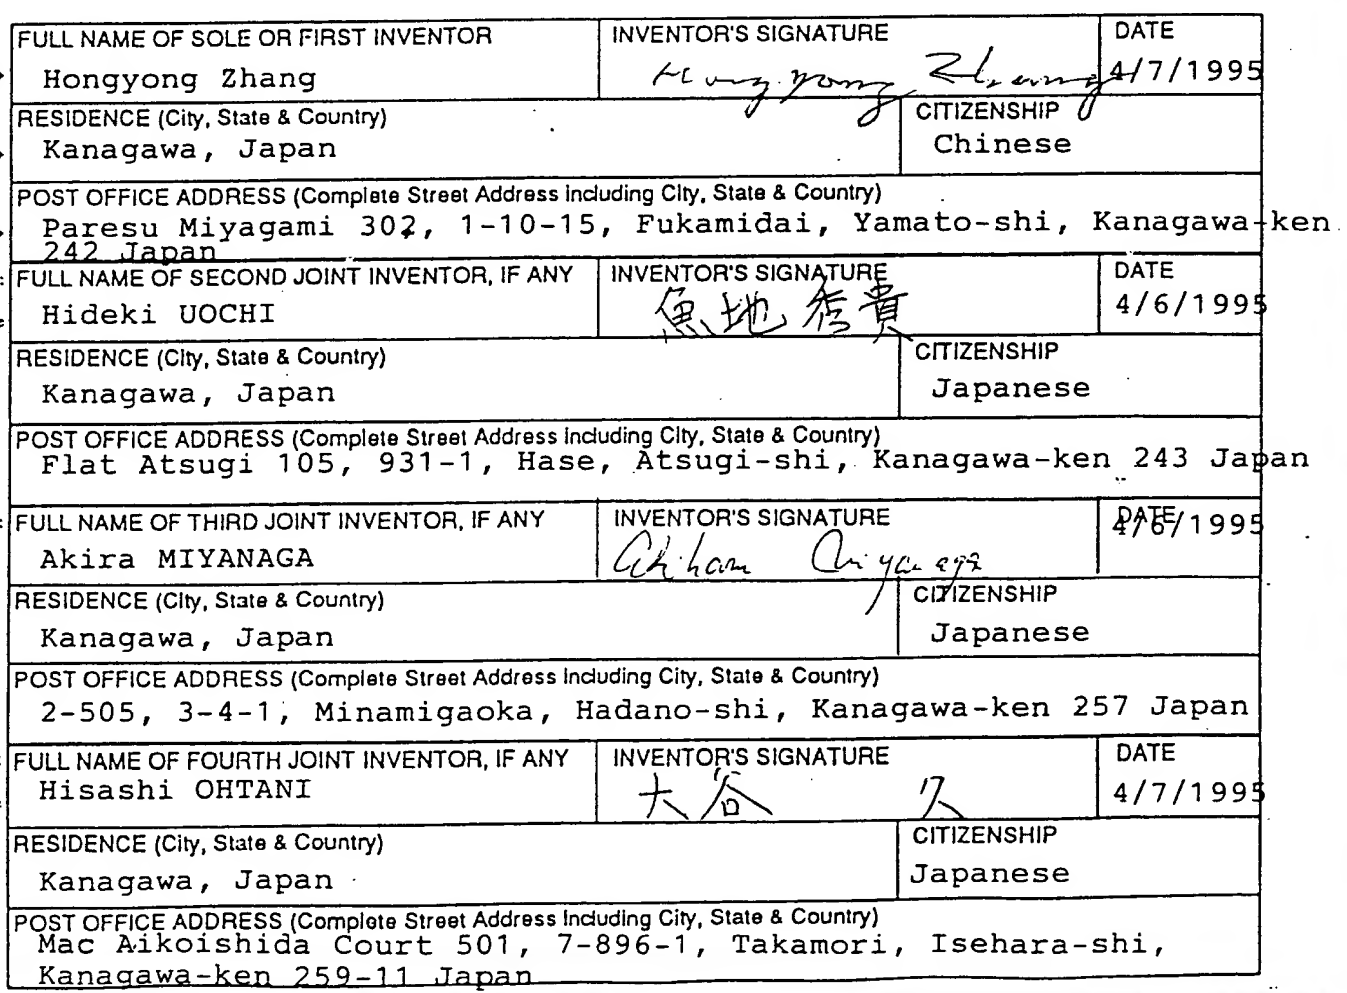 FULL NAME OF SOLE OR FIRST INVENTOR INVENTOR'S SIGNATURE DATE
Hongyong Zhang Hongyong Zhang 4/7/1995
RESIDENCE (City, State & Country) CITIZENSHIP
Kanagawa, Japan Chinese
POST OFFICE ADDRESS (Complete Street Address including City, State & Country)
Paresu Miyagami 302, 1-10-15, Fukamidai, Yamato-shi, Kanagawa-ken
242 Japan
FULL NAME OF SECOND JOINT INVENTOR, IF ANY INVENTOR'S SIGNATURE DATE
Hideki UOCHI 魚地 秀貴 4/6/1995
RESIDENCE (City, State & Country) CITIZENSHIP
Kanagawa, Japan Japanese
POST OFFICE ADDRESS (Complete Street Address including City, State & Country)
Flat Atsugi 105, 931-1, Hase, Atsugi-shi, Kanagawa-ken 243 Japan
FULL NAME OF THIRD JOINT INVENTOR, IF ANY INVENTOR'S SIGNATURE DATE
Akira MIYANAGA Miyanaga 4/6/1995
RESIDENCE (City, State & Country) CITIZENSHIP
Kanagawa, Japan Japanese
POST OFFICE ADDRESS (Complete Street Address including City, State & Country)
2-505, 3-4-1, Minamigaoka, Hadano-shi, Kanagawa-ken 257 Japan
FULL NAME OF FOURTH JOINT INVENTOR, IF ANY INVENTOR'S SIGNATURE DATE
Hisashi OHTANI 大谷 久 4/7/1995
RESIDENCE (City, State & Country) CITIZENSHIP
Kanagawa, Japan Japanese
POST OFFICE ADDRESS (Complete Street Address including City, State & Country)
Mac Aikoishida Court 501, 7-896-1, Takamori, Isehara-shi,
Kanagawa-ken 259-11 Japan